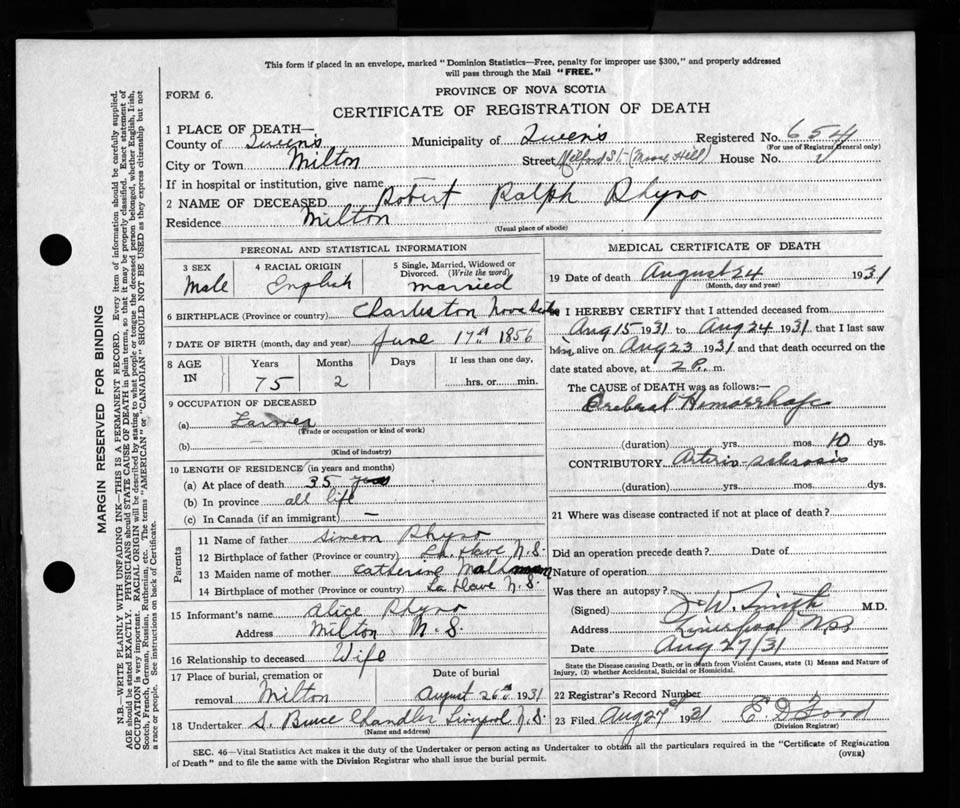 This form if placed in an envelope, marked "Dominion Statistics—Free, penalty for improper use $300," and properly addressed
will pass through the Mail "FREE."
FORM 6.
PROVINCE OF NOVA SCOTIA
CERTIFICATE OF REGISTRATION OF DEATH
1 PLACE OF DEATH—
County of Queen's Municipality of Queen's Registered No. 654
(For use of Registrar General only)
City or Town Milton Street Milford St-(Moose Hill) House No.
If in hospital or institution, give name —
2 NAME OF DECEASED Robert Ralph Rhyno
Residence Milton
(Usual place of abode)
PERSONAL AND STATISTICAL INFORMATION
3 SEX 4 RACIAL ORIGIN 5 Single, Married, Widowed or
Divorced. (Write the word)
Male English married
6 BIRTHPLACE (Province or country) Charleston Nova Scotia
7 DATE OF BIRTH (month, day and year) June 17th 1856
8 AGE IN Years Months Days If less than one day,
75 2 hrs. or min.
9 OCCUPATION OF DECEASED
(a) Farmer
(Trade or occupation or kind of work)
(b)
(Kind of industry)
10 LENGTH OF RESIDENCE (in years and months)
(a) At place of death 35 years
(b) In province all life
(c) In Canada (if an immigrant) —
Parents
11 Name of father Simeon Rhyno
12 Birthplace of father (Province or country) La Have N.S.
13 Maiden name of mother Catherine
14 Birthplace of mother (Province or country) La Have N.S.
15 Informant's name Alice Rhyno
Address Milton N.S.
16 Relationship to deceased Wife
17 Place of burial, cremation or Date of burial
removal Milton August 26th 1931
18 Undertaker S. Bruce Chandler Liverpool N.S.
(Name and address)
MEDICAL CERTIFICATE OF DEATH
19 Date of death August 24 1931
(Month, day and year)
I HEREBY CERTIFY that I attended deceased from
Aug 15 1931 to Aug 24 1931, that I last saw
him alive on Aug 23 1931 and that death occurred on the
date stated above, at 2 P. m.
The CAUSE of DEATH was as follows:—
Cerebral Hemorrhage
(duration) yrs. mos. 10 dys.
CONTRIBUTORY Arterio sclerosis
(duration) yrs. mos. dys.
21 Where was disease contracted if not at place of death?
Did an operation precede death? Date of
Nature of operation
Was there an autopsy?
(Signed) J. W. Smith M.D.
Address Liverpool NS
Date Aug 27/31
State the Disease causing Death, or in death from Violent Causes, state (1) Means and Nature of
Injury, (2) whether Accidental, Suicidal or Homicidal.
22 Registrar's Record Number
23 Filed Aug 27th 1931
(Division Registrar)
SEC. 46—Vital Statistics Act makes it the duty of the Undertaker or person acting as Undertaker to obtain all the particulars required in the "Certificate of Registration
of Death" and to file the same with the Division Registrar who shall issue the burial permit.
(OVER)
MARGIN RESERVED FOR BINDING
N.B.—WRITE PLAINLY WITH UNFADING INK—THIS IS A PERMANENT RECORD. Every item of information should be carefully supplied.
AGE should be stated EXACTLY. PHYSICIANS should STATE CAUSE OF DEATH in plain terms, so that it may be properly classified. Exact statement of
OCCUPATION is very important. RACIAL ORIGIN will be described by stating to what people or tongue the deceased person belonged, whether English, Irish,
Scotch, French, German, Russian, Ruthenian, etc. The terms "AMERICAN" or "CANADIAN" SHOULD NOT BE USED as they express citizenship but not
a race or people. See instructions on back of Certificate.